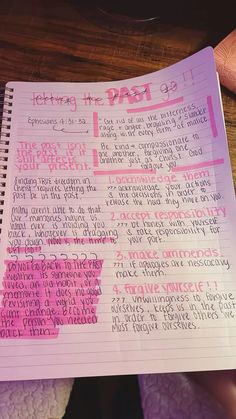 letting the PAST go!!
Ephesians 4:31-32
"Get rid of all the bitterness,
rage + anger, brawling + slander
along with every form of malice
Be kind + compassionate to
one another, forgiving one
another just as Christ God
forgave you
The past isn't
the past if it
still affects
your present
finding TRUE freedom in
Christ requires letting the
past be in the past
1. acknowledge them
??? acknowledge your actions
& the decisions in order to
release the hold they have on you
2. accept responsibility
??? be honest with yourself
& take responsibility for
your part.
3. make ammends
??? if apologies are
make them.
4. forgive yourself!!
??? unwillingness to forgive
ourselves, keeps us in the past
in order to forgive others we
must forgive ourselves.
DO NOT GO BACK TO THE PAST
whether is someone you
loved, an old habit, or a
memory it does no good
revisiting a world you
can't change. Become
the person you needed
back then.